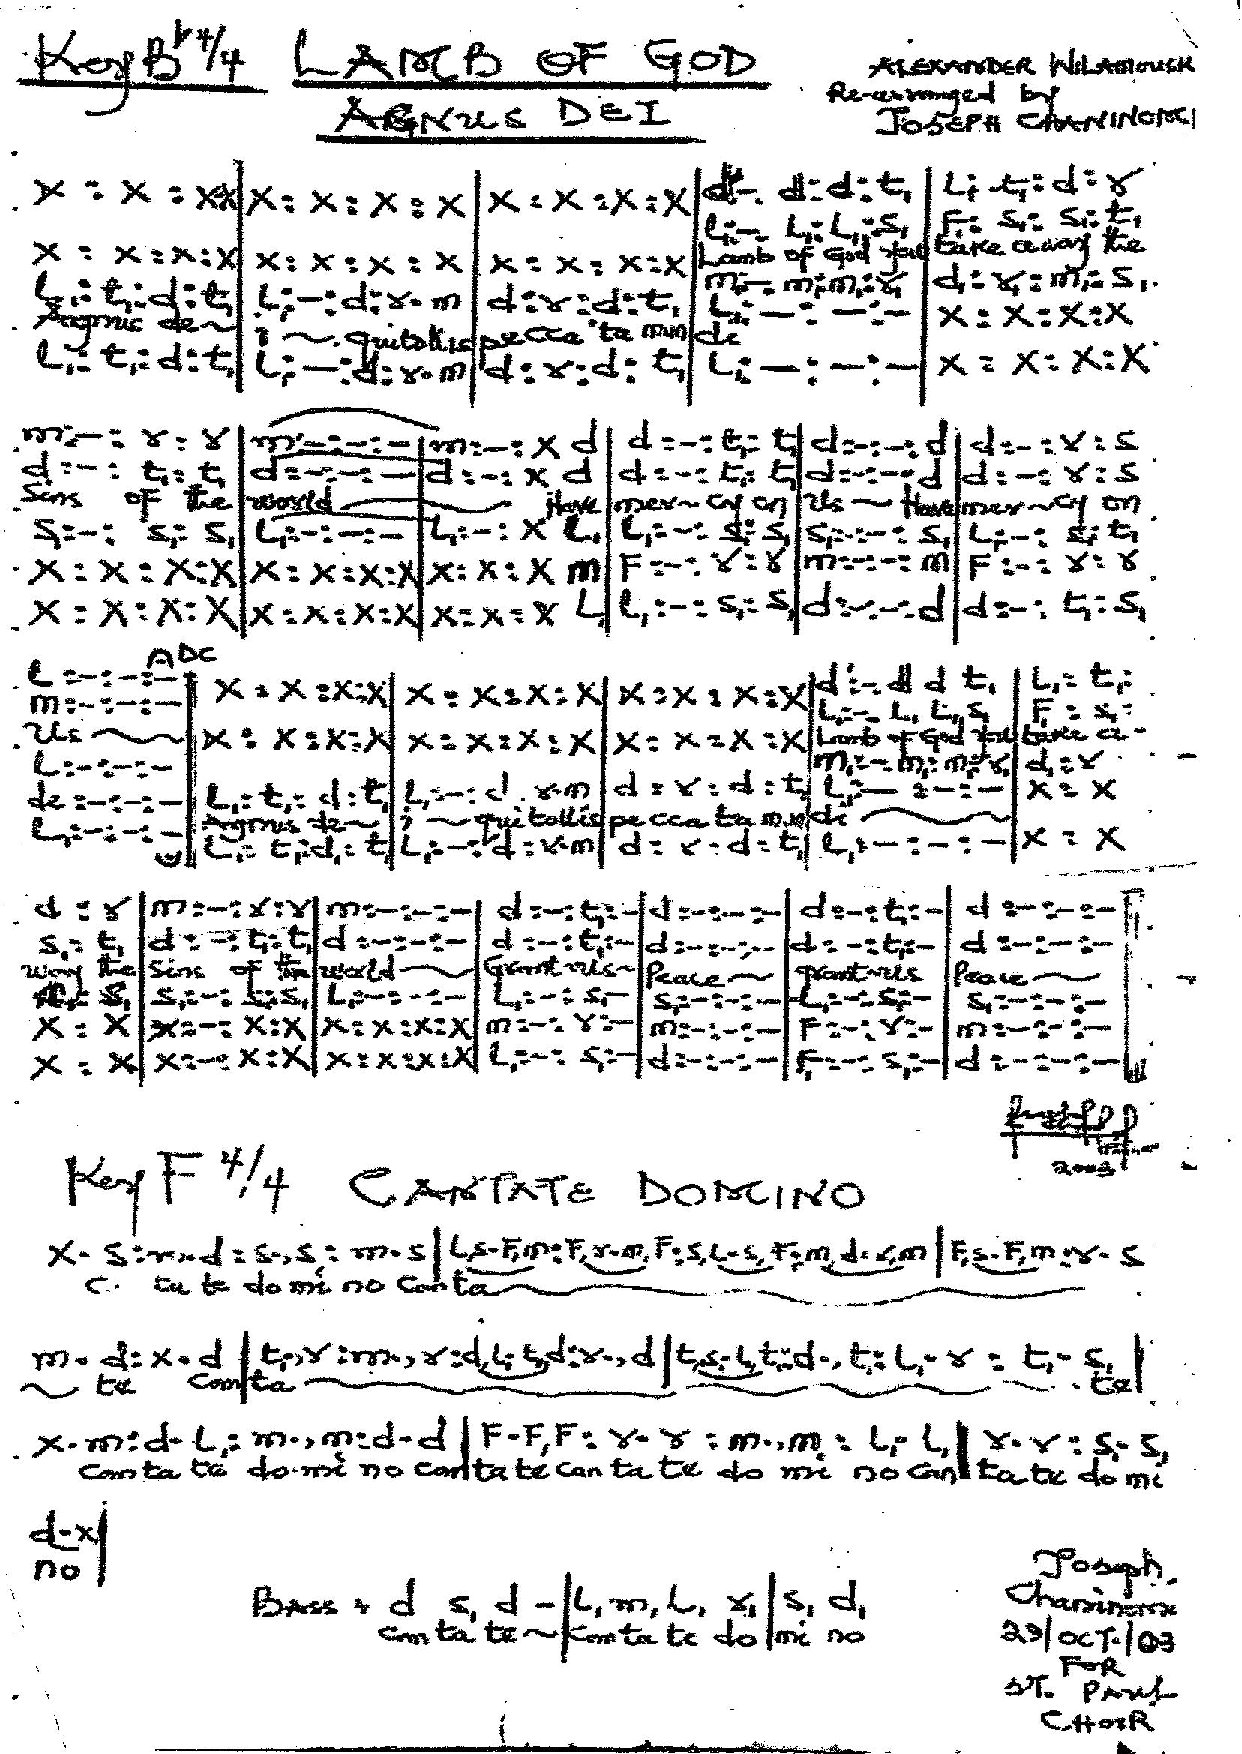 Key B♭ 4/4 LAMB OF GOD
AGNUS DEI
ALEXANDER
Re-arranged by
JOSEPH
X : X : X X | X : X : X : X | X : X : X : X | d :-. d : d : t, | L, : t, : d : r
L, :-. L, : L, : S, | F, : S, : S, : t,
X : X : X : X | X : X : X : X | X : X : X : X | Lamb of God you | take away the
m, :-. m, : m, : r, | d, : r, : m, : S,
L, : t, : d : t, | L, :-: d : r. m | d : r : d : t, | L, :-:-:- | X : X : X : X
Aagnus de ~ | i ~ quitollis | pecca ta mun | di
L, : t, : d : t, | L, :-: d : r. m | d : r : d : t, | L, :-:-:- | X : X : X : X
m :-: r : r | m :-:-:- | m :-: X d | d :-: t, : t, | d :-:-: d | d :-: r : S
d :-: t, : t, | d :-:-:- | d :-: X d | d :-: t, : t, | d :-:-: d | d :-: r : S
Sins of the | world ~ Have | mer ~ cy on | Us ~ Have | mer ~ cy on
S, :-: S, : S, | L, :-:-:- | L, :-: X L, | L, :-: S, : S, | S, :-:-: S, | L, :-: S, : t,
X : X : X : X | X : X : X : X | X : X : X m | F :-: r : r | m :-:-: m | F :-: r : r
X : X : X : X | X : X : X : X | X : X : X L, | L, :-: S, : S, | d :-:-: d | d :-: t, : S,
DC
L :-:-:- | X : X : X : X | X : X : X : X | X : X : X : X | d :-. d d t, | L, : t, :
m :-:-:- | L, :-. L, L, S, | F, : S, :
Us ~ | X : X : X : X | X : X : X : X | X : X : X : X | Lamb of God you | take a-
L, :-:-:- | m, :-. m, : m, : r, | d, : r
de :-:-:- | L, : t, : d : t, | L, :-: d r. m | d : r : d : t, | L, :-:-:- | X : X
Agnus de ~ | i ~ quitollis | pecca ta mun | di ~
L, :-:-:- | L, : t, : d : t, | L, :-: d : r. m | d : r : d : t, | L, :-:-:- | X : X
d : r | m :-: r : r | m :-:-:- | d :-: t, :- | d :-:-:- | d :-: t, :- | d :-:-:-
S, : t, | d :-: t, : t, | d :-:-:- | d :-: t, :- | d :-:-:- | d :-: t, :- | d :-:-:-
way the | Sins of the | world ~ | Grant us ~ | Peace ~ | grant us | Peace ~
S, | S, :-: S, : S, | L, :-:-:- | L, :-: S, :- | S, :-:-:- | L, :-: S, :- | S, :-:-:-
X : X | X :-: X : X | X : X : X : X | m :-: r :- | m :-:-:- | F :-: r :- | m :-:-:-
X : X | X :-: X : X | X : X : X : X | L, :-: S, :- | d :-:-:- | F, :-: S, :- | d :-:-:-
2003
Key F 4/4 CANTATE DOMINO
X. S : m., d : S., S : m. S | L, S. F, m : F, r. m, F : S, L. S, F : m, d. r, m | F, S. F, m : r. S
C. ta te do mi no Canta ~
m. d : X. d | t,., r : m., r : d, L,. t, d : r., d | t, S,. L, t, : d., t, : L,. r : t,. S, |
~ te Canta ~ te
X. m : d. L, : m., m : d. d | F. F, F : r. r : m., m : L,. L, | r. r : S,. S,
canta te do mi no can | ta te can ta te do mi no Can | ta te do mi
d. X |
no
BASS : d S, d - | L, m, L, r, | S, d,
can ta te ~ | can ta te do | mi no
Joseph
29/OCT./03
FOR
ST. PAUL
CHOIR